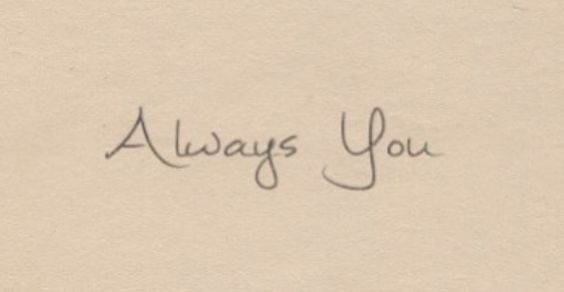 Always You